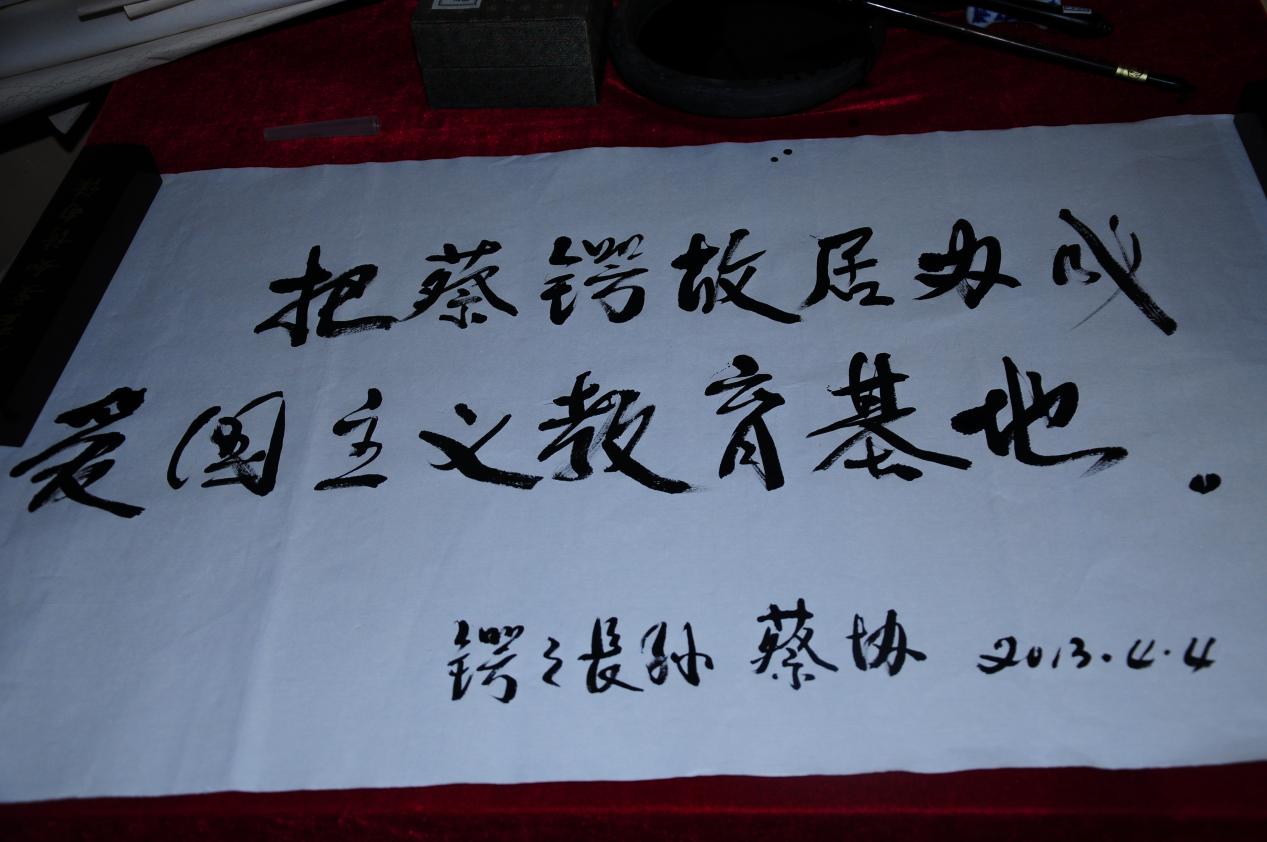 把蔡锷故居办成
爱国主义教育基地。
锷之長孙 蔡协 2013.4.4